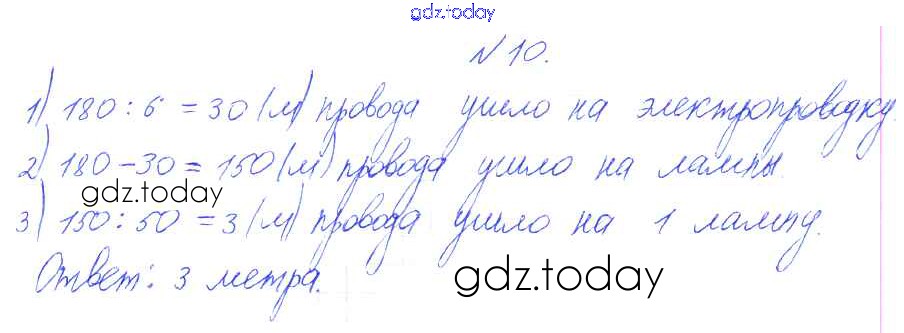 gdz.today
№ 10.
1) 180 : 6 = 30 (м) провода ушло на электропроводку.
2) 180 - 30 = 150 (м) провода ушло на лампы
gdz.today
3) 150 : 50 = 3 (м) провода ушло на 1 лампу.
Ответ: 3 метра.
gdz.today